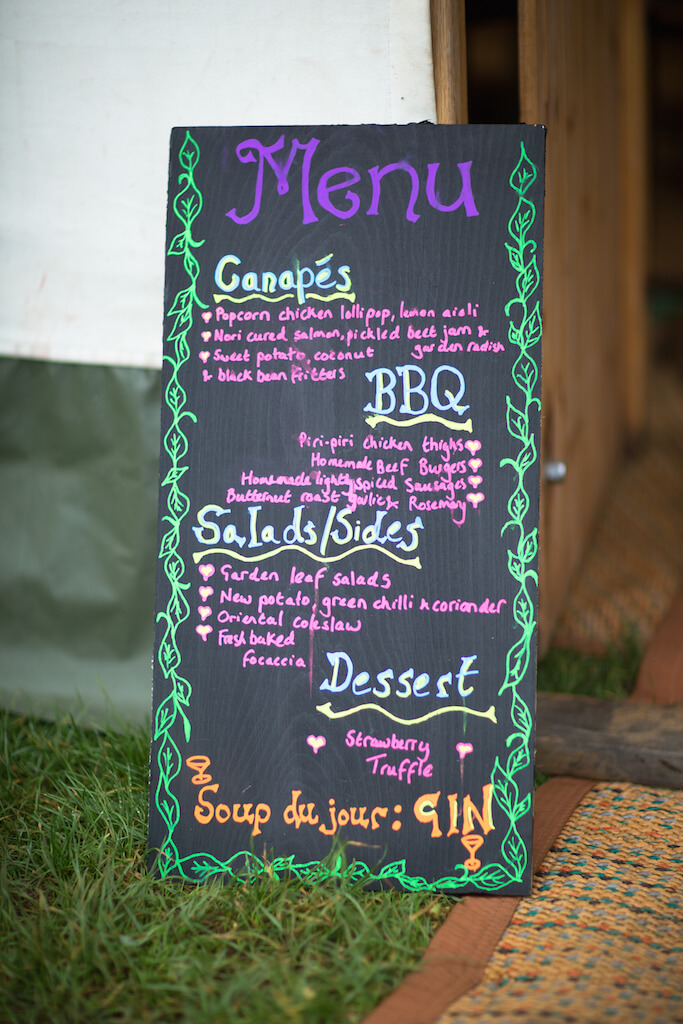 Menu
Canapés
Popcorn chicken lollipop, lemon aioli
Nori cured salmon, pickled beet jam &
garden radish
Sweet potato, coconut
& black bean fritters
BBQ
Piri-piri chicken thighs
Homemade Beef Burgers
Homemade lightly spiced Sausages
Butternut roast garlic & Rosemary
Salads/Sides
Garden leaf salads
New potato, green chilli & coriander
Oriental coleslaw
Fresh baked
Focaccia
Dessert
Strawberry
Truffle
Soup du jour: GIN